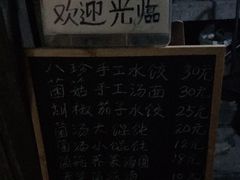 欢迎光临
八珍手工水饺 30元
菌菇手工汤面 30元
胡椒茄子水饺 25元
菌汤大馄饨 20元
菌汤小馄饨 12元